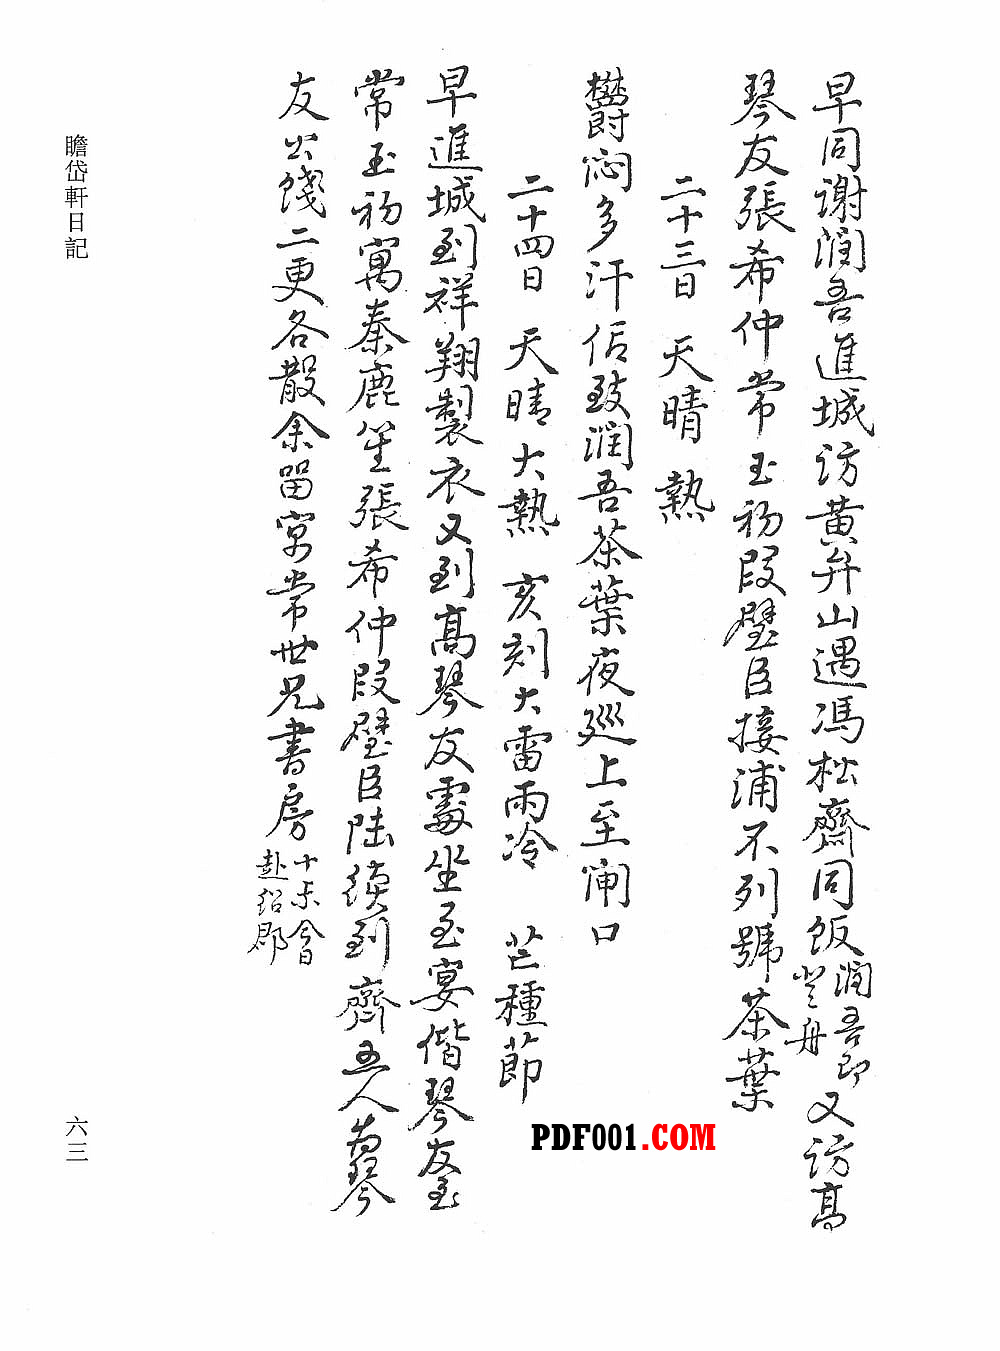 早同謝潤吾進城訪黄弁山遇馮松齋同飯潤吾即登舟又訪高
琴友張希仲常玉初段璧臣接浦不列號茶葉
二十三日 天晴 熱
欝悶多汗佰致潤吾茶葉夜廵上至閘口
二十四日 天晴大熱 亥刻大雷雨冷 芒種節
早進城到祥翔製衣又到高琴友處坐至宴偕琴友至
常玉初寓秦鹿笙張希仲段璧臣陸續到齊五人為琴
友公餞二更各散余留宿常世兄書房
赴紹郡
瞻岱軒日記
六三
PDF001.COM